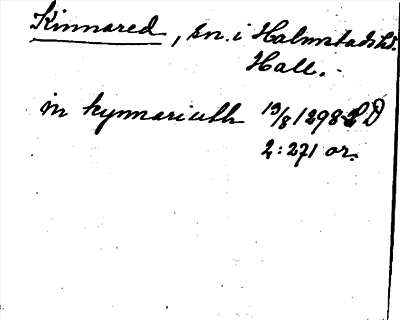 Kinnared, sn. i Halmstads hd.
Hall.
in kynnariuth 19/8 1298 SD
2:271 or.